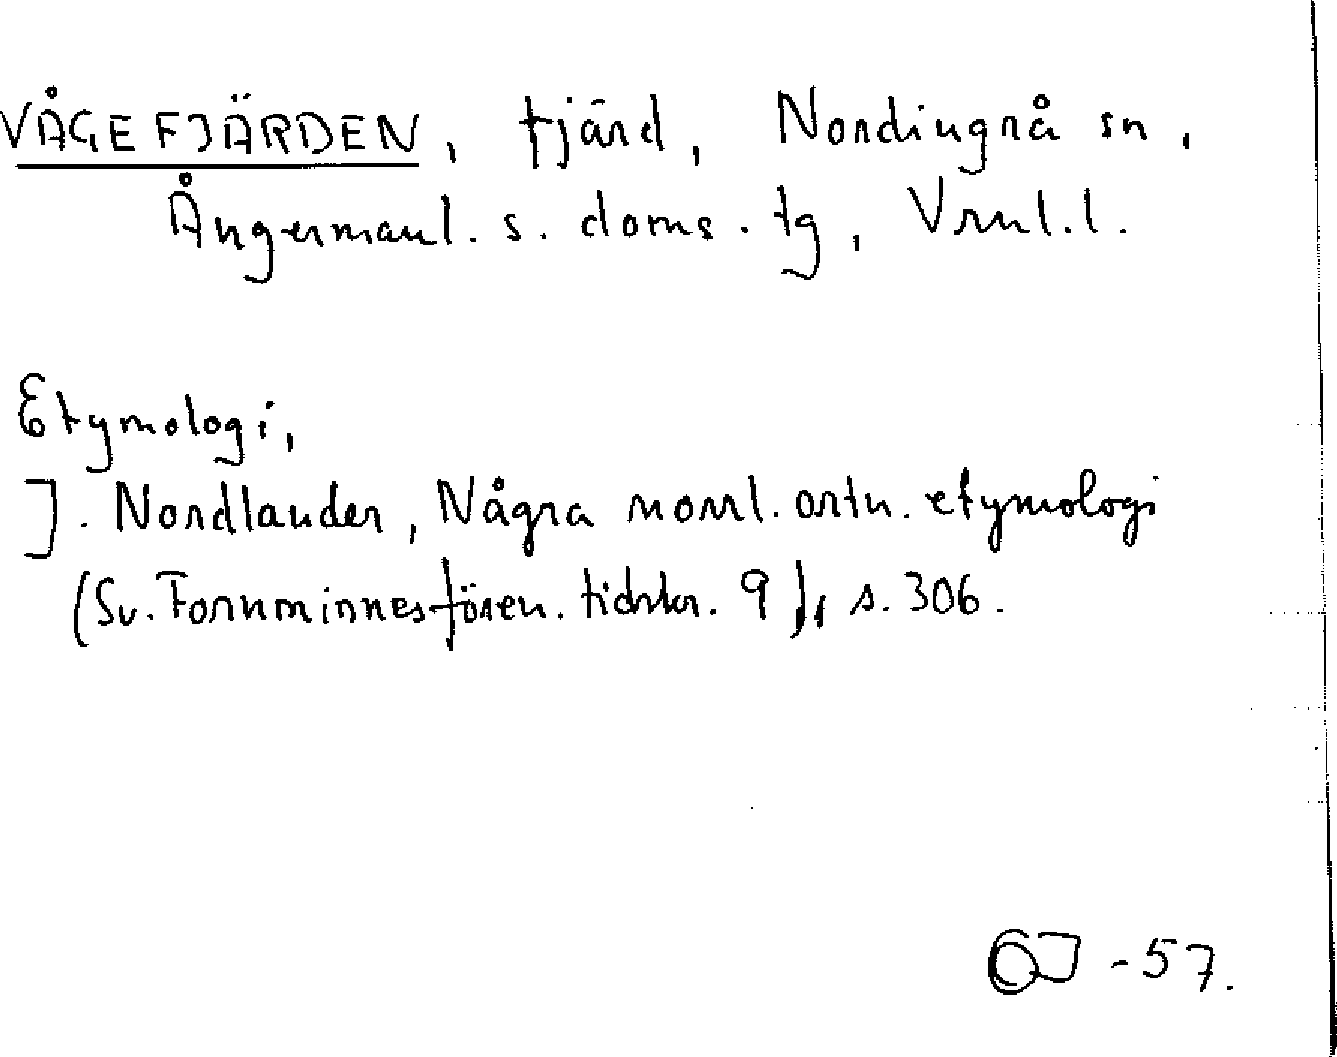 VÅGEFJÄRDEN, fjärd, Nordingrå sn,
Ångermanl. s. doms. tg, Vrnl. l.
Etymologi,
J. Nordlander, Några norrl. ortn. etymologi
(Sv. Fornminnesfören. tidskr. 9), s. 306.
-57.